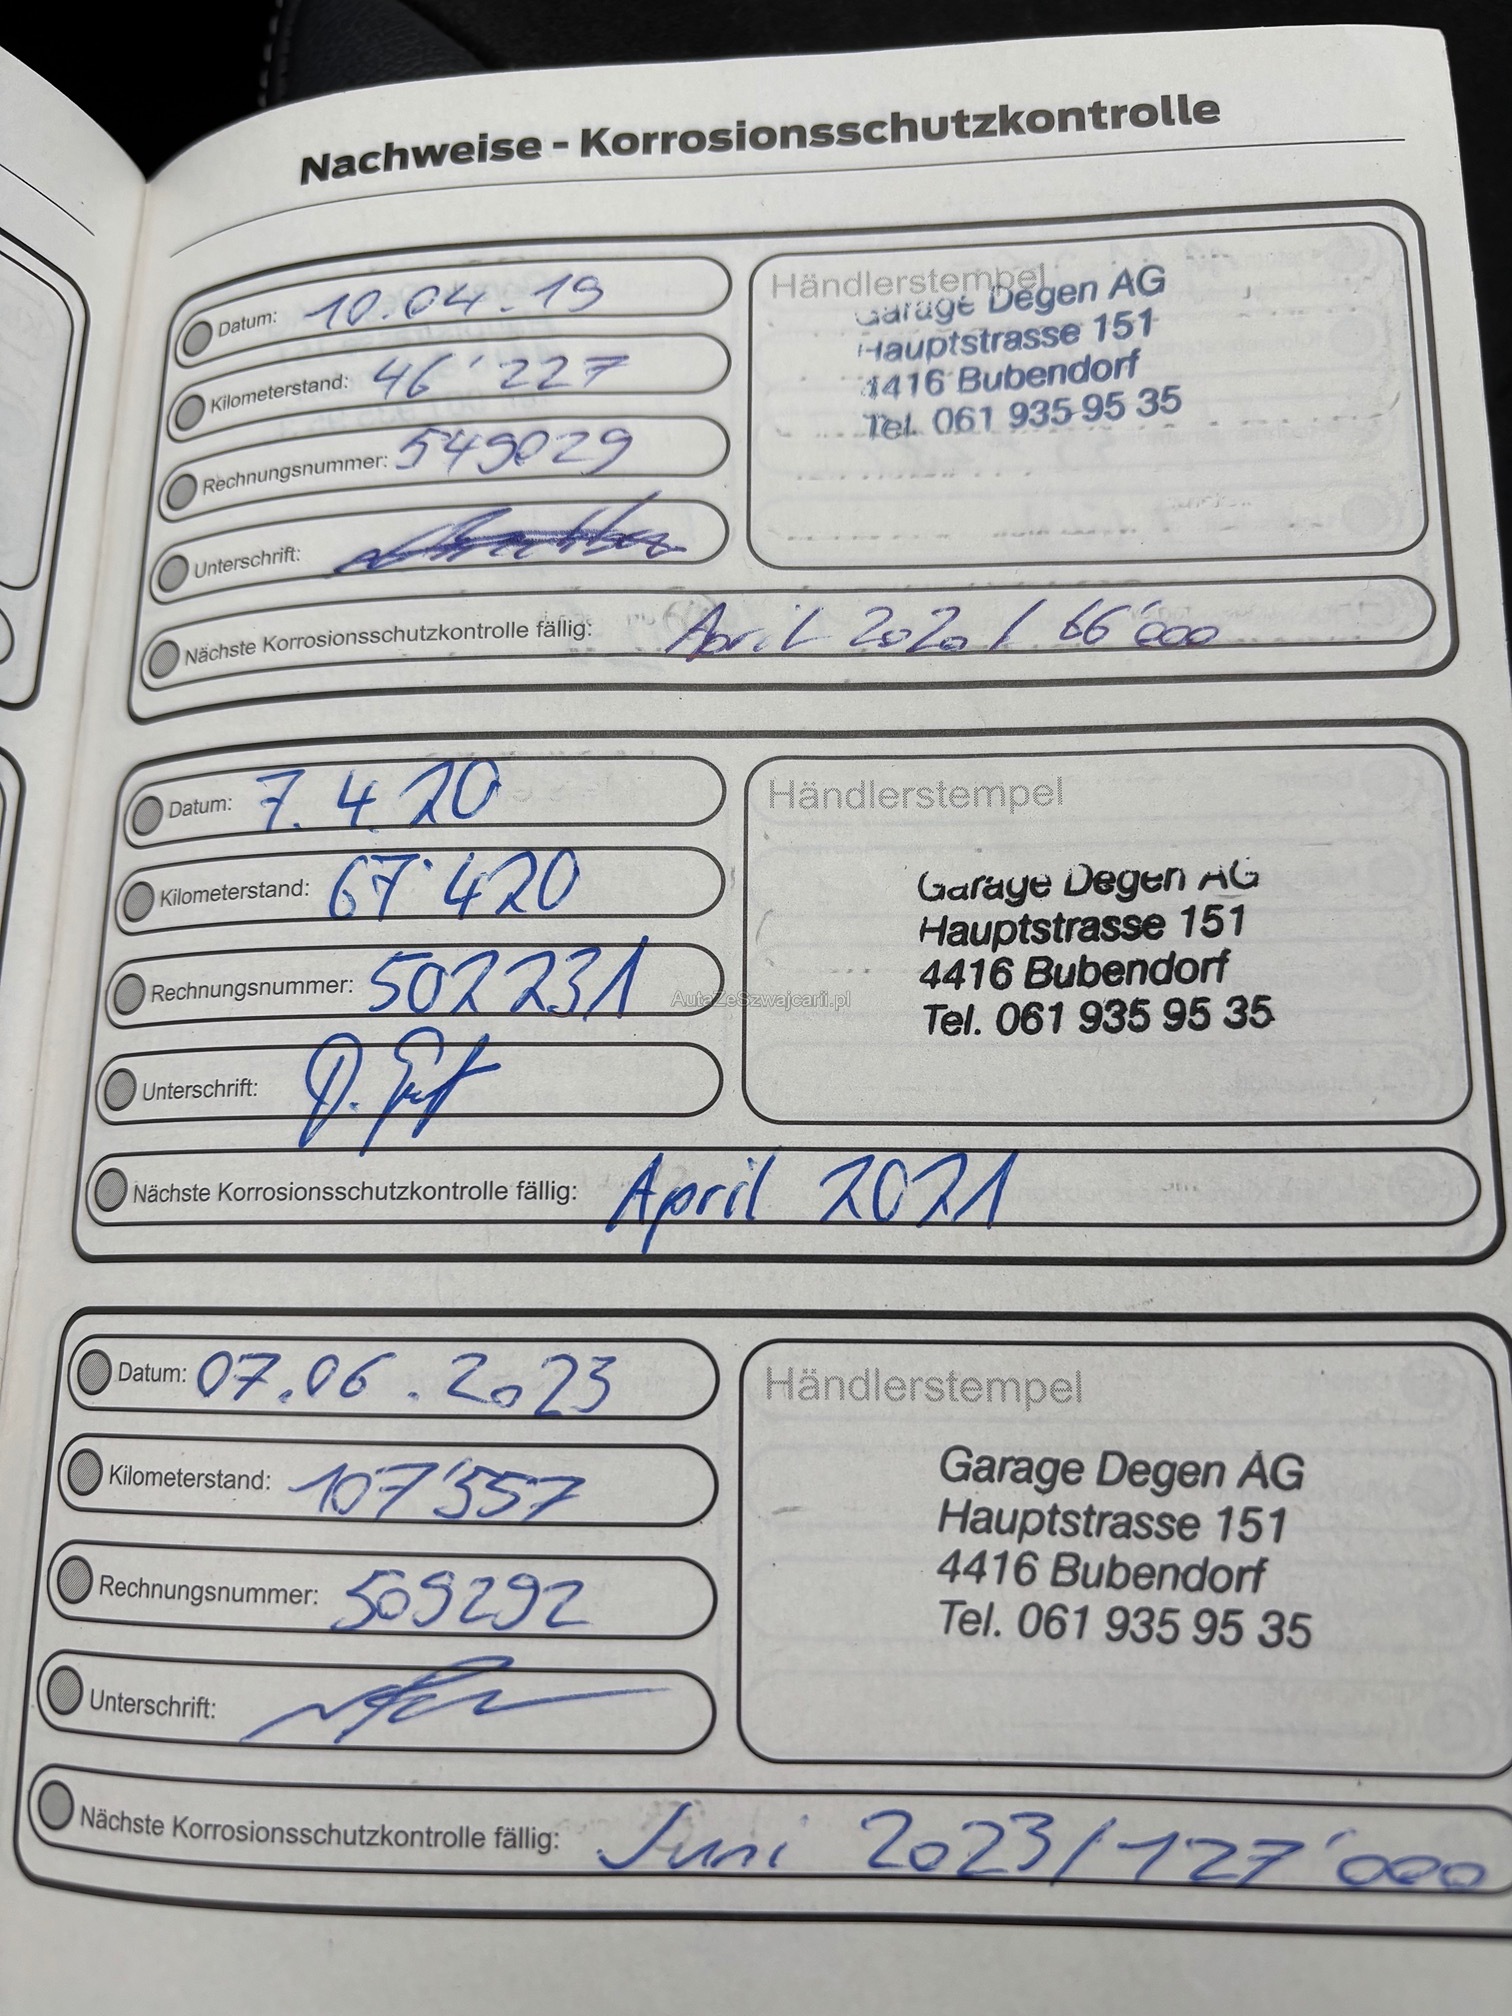 Nachweise - Korrosionsschutzkontrolle
Datum: 10.04.19
Kilometerstand: 46'227
Rechnungsnummer: 549029
Unterschrift:
Händlerstempel
Garage Degen AG
Hauptstrasse 151
4416 Bubendorf
Tel. 061 935 95 35
Nächste Korrosionsschutzkontrolle fällig: April 2020 / 66'000
Datum: 7.4.20
Kilometerstand: 67'420
Rechnungsnummer: 502231
Unterschrift:
Händlerstempel
Garage Degen AG
Hauptstrasse 151
4416 Bubendorf
Tel. 061 935 95 35
AutaZeSzwajcarii.pl
Nächste Korrosionsschutzkontrolle fällig: April 2021
Datum: 07.06.2023
Kilometerstand: 107'557
Rechnungsnummer: 509292
Unterschrift:
Händlerstempel
Garage Degen AG
Hauptstrasse 151
4416 Bubendorf
Tel. 061 935 95 35
Nächste Korrosionsschutzkontrolle fällig: Juni 2023 / 127'000